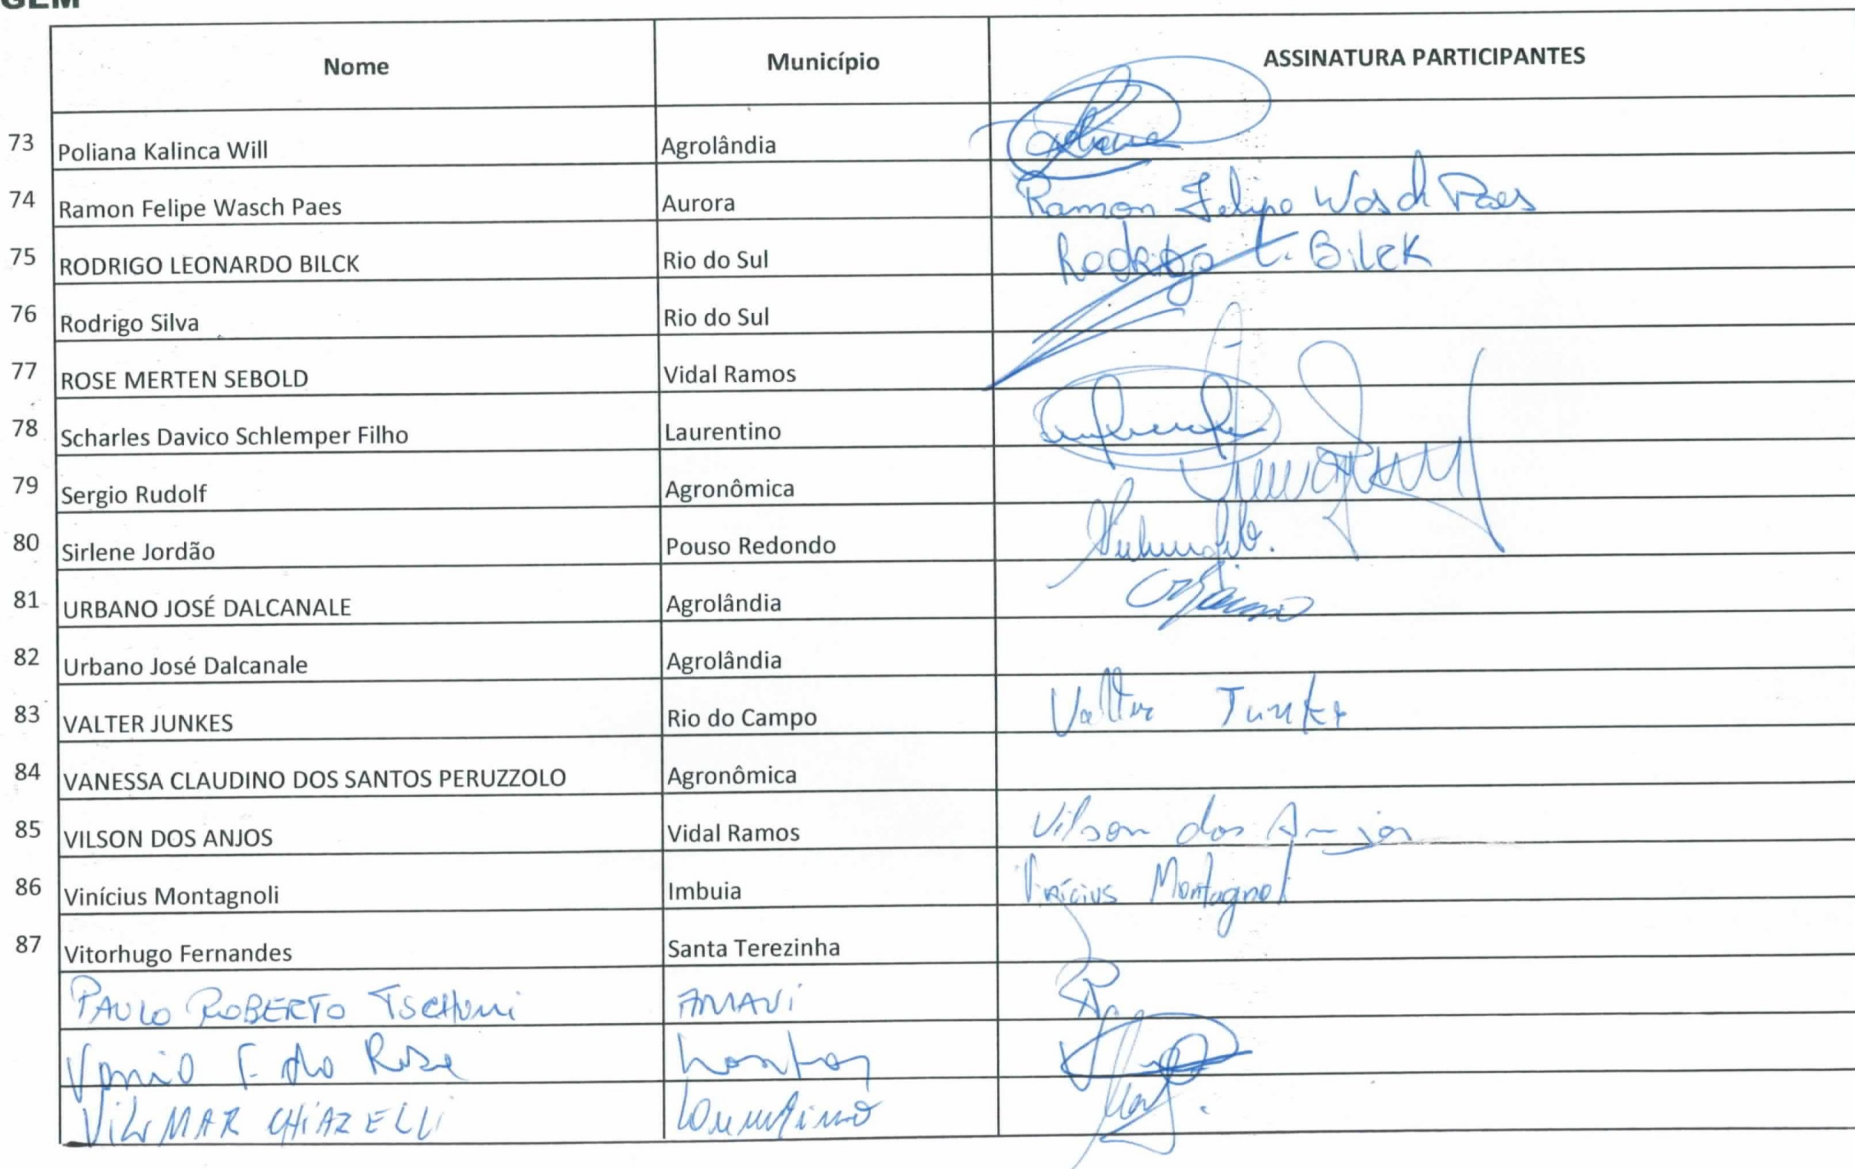 GEM
Nome Município ASSINATURA PARTICIPANTES
73 Poliana Kalinca Will Agrolândia
74 Ramon Felipe Wasch Paes Aurora Ramon Felipe Wasch Paes
75 RODRIGO LEONARDO BILCK Rio do Sul Rodrigo L. Bilck
76 Rodrigo Silva Rio do Sul
77 ROSE MERTEN SEBOLD Vidal Ramos
78 Scharles Davico Schlemper Filho Laurentino
79 Sergio Rudolf Agronômica
80 Sirlene Jordão Pouso Redondo
81 URBANO JOSÉ DALCANALE Agrolândia
82 Urbano José Dalcanale Agrolândia
83 VALTER JUNKES Rio do Campo Valter Junkes
84 VANESSA CLAUDINO DOS SANTOS PERUZZOLO Agronômica
85 VILSON DOS ANJOS Vidal Ramos Vilson dos Anjos
86 Vinícius Montagnoli Imbuia Vinícius Montagnoli
87 Vitorhugo Fernandes Santa Terezinha
PAULO ROBERTO TSCHUMI AMAVI
F. da Rosa Lontras
VILMAR CHIAZELLI Laurentino